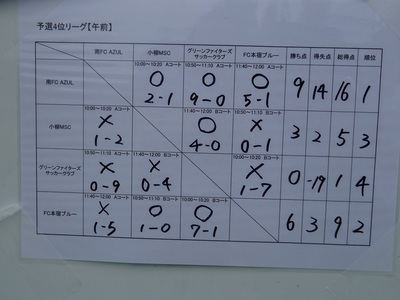 予選4位リーグ【午前】
南FC AZUL 小柳MSC グリーンファイターズサッカークラブ FC本宿ブルー 勝ち点 得失点 総得点 順位
10:00～10:20 Aコート 10:50～11:10 Aコート 11:40～12:00 Aコート
南FC AZUL ○ ○ ○ 9 14 16 1
2-1 9-0 5-1
10:00～10:20 Aコート 11:40～12:00 Bコート 10:50～11:10 Bコート
小柳MSC × ○ × 3 2 5 3
1-2 4-0 0-1
10:50～11:10 Aコート 11:40～12:00 Bコート 10:00～10:20 Bコート
グリーンファイターズサッカークラブ × × × 0 -19 1 4
0-9 0-4 1-7
11:40～12:00 Aコート 10:50～11:10 Bコート 10:00～10:20 Bコート
FC本宿ブルー × ○ ○ 6 3 9 2
1-5 1-0 7-1